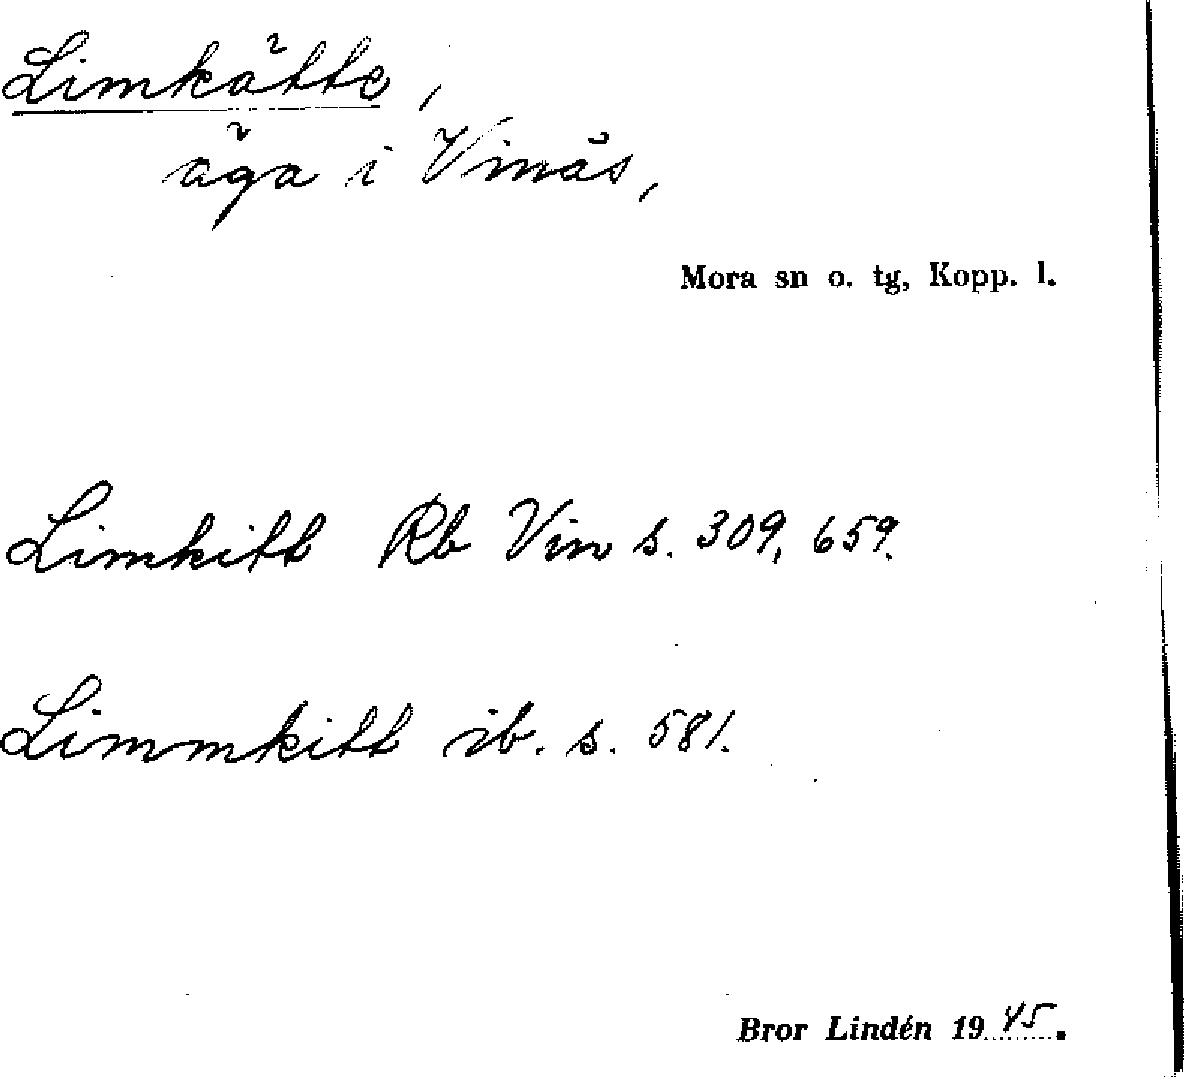 Limkätte,
äga i Vinäs,
Mora sn o. tg, Kopp. l.
Limkitt Rb Vin s. 309, 659.
Limmkitt ib. s. 581.
Bror Lindén 1945.